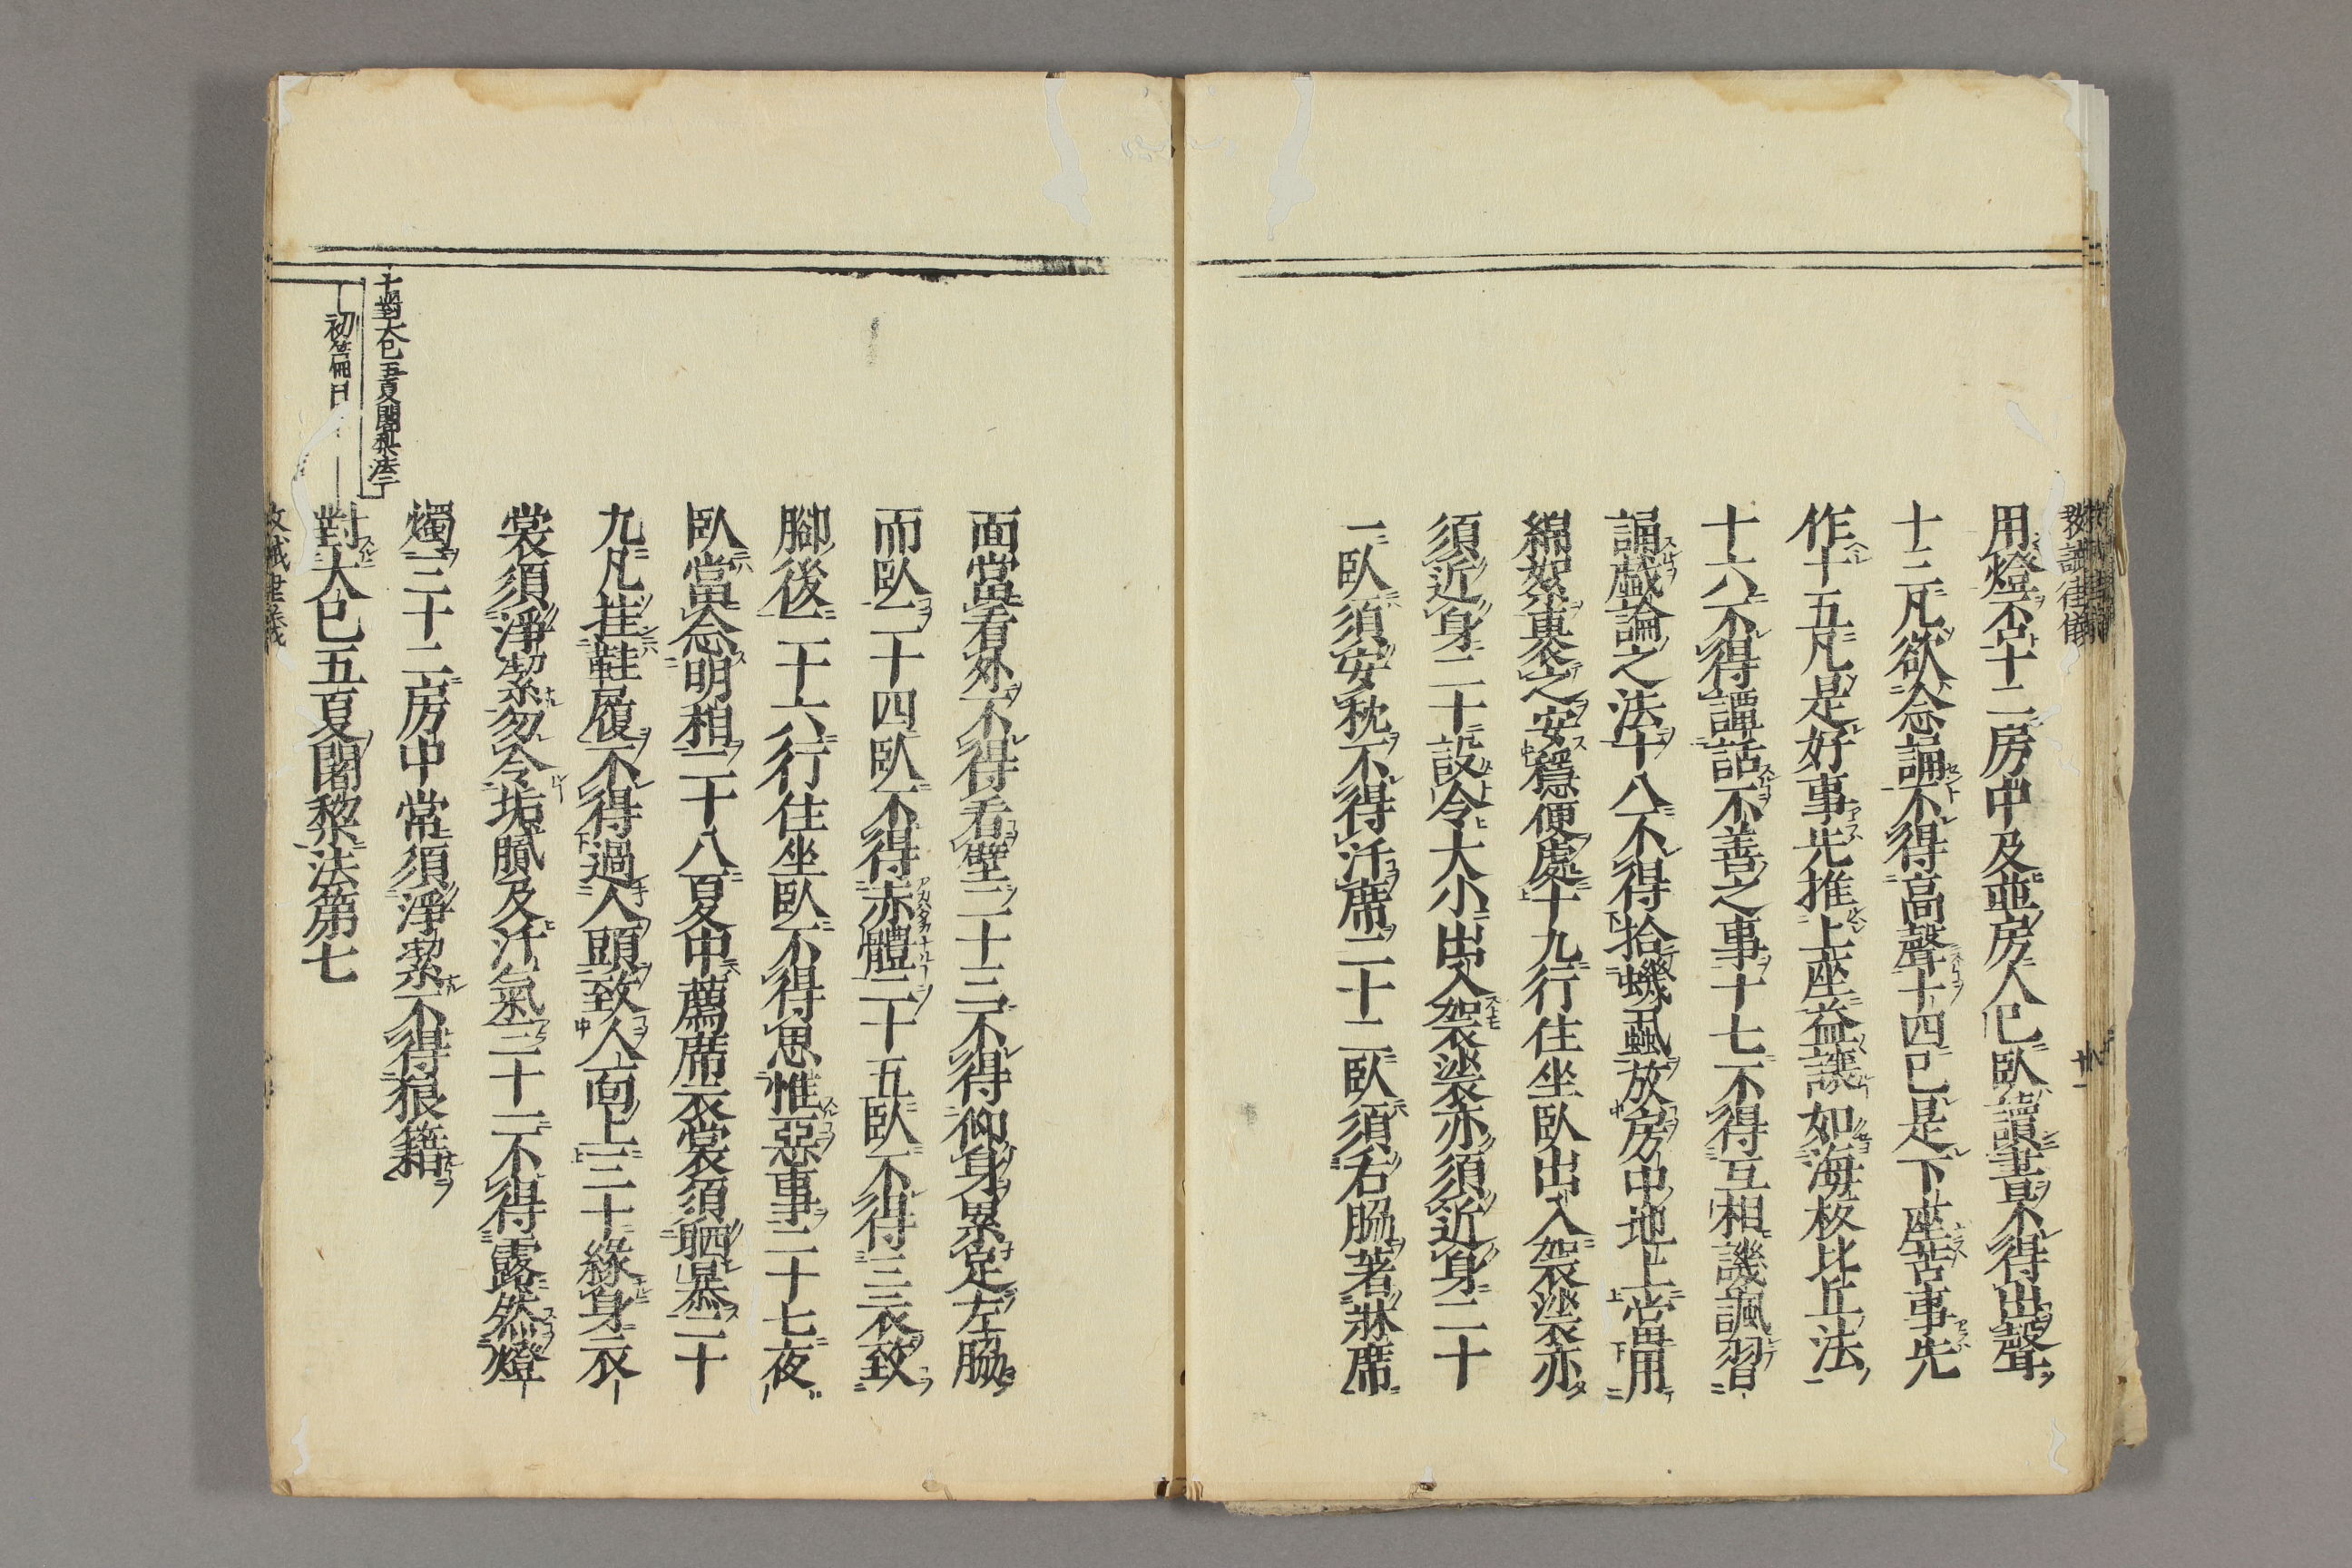 教誡律儀
用燈不名十二房中及並房人已臥讀書不得出聲
十三凡欲念誦不得高聲十四已是下座苦事先
作十五凡是好事先推上座益讓如海板比丘法
十六不得譚話不善之事十七不得互相譏諷習
誦戲論之法十八不得拾蟣虱放房中地上當用
綿絮裹之安穩便處十九行住坐臥出入袈裟亦
須近身二十設令大小出入袈裟亦須近身二十
一臥須安枕不得汙席二十二臥須右脇著牀席
面當看外不得看壁二十三不得仰身累足左脇
而臥二十四臥不得赤體二十五臥不得三衣致
腳後二十六行住坐臥不得思惟惡事二十七夜
臥當念明相二十八夏中薦席衣裳須晒暴二十
九凡挂鞋履不得過人頭致人面上三十緣身衣
裳須淨潔勿令垢膩及汗氣三十一不得露然燈
燭三十二房中常須淨潔不得狼籍
十對大已五夏闍梨法二
初篇目
對大已五夏闍黎法第七